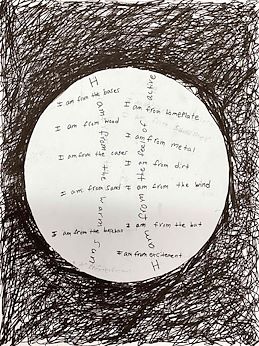 I am from the bases
I am from homeplate
I am from wood
I am from metal
I am from the
I am from dirt
I am from sand
I am from the wind
I am from the
I am from the bat
I am from excitement
I am from the warm sun
the feel of
active